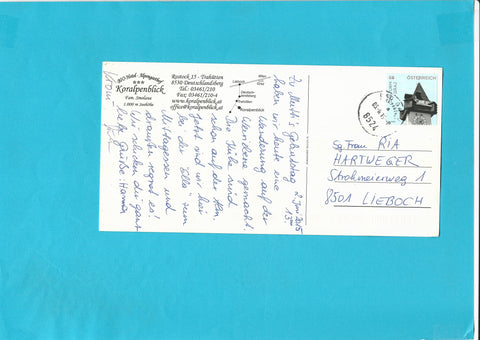 BIO Hotel - Alpengasthof
Koralpenblick
Fam. Smolana
1.000 m Seehöhe
Rostock 15 - Trahütten
8530 Deutschlandsberg
Tel.: 03461/210
Fax: 03461/210-4
www.koralpenblick.at
office@koralpenblick.at
Graz
Deutsch-
landsberg
Trahütten
Koralpenblick
2. Juni 2015
Zu Mutti's Geburtstag
haben wir heute eine
Wanderung auf der
Weinebene gemacht.
Die Kühe sind
schon auf der Alm.
Jetzt sind wir hier
bei der zum
Mittagessen und
draußen regnet es!
Wir schicken dir ganz
liebe Grüße. Hannes
ÖSTERREICH
68
8524
Sg. Frau RIA
HARTWEGER
Strohmeierweg 1
8501 LIEBOCH